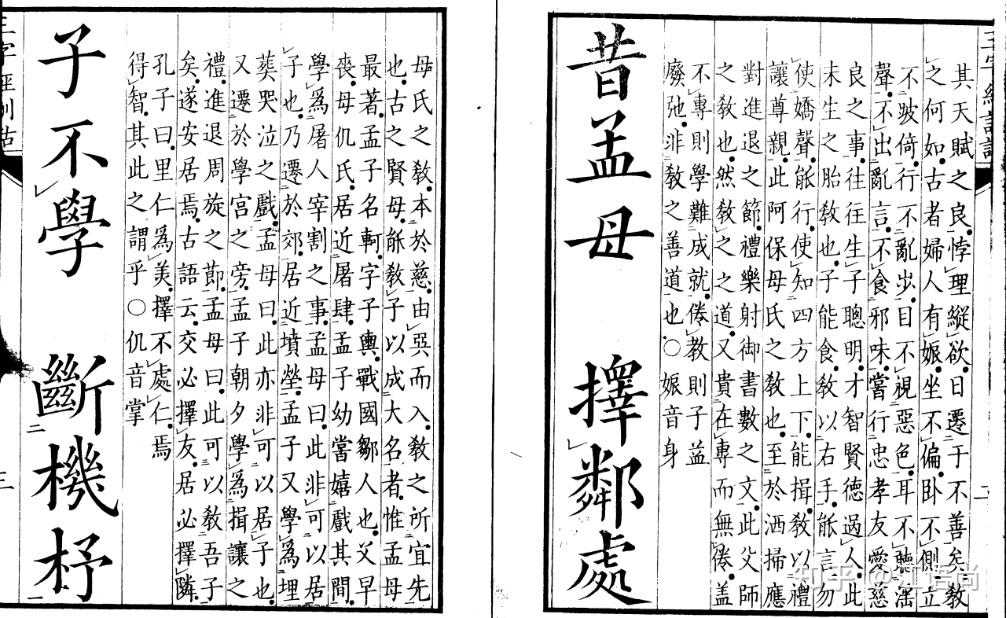 三字經訓詁
其天賦之良。悖理縱欲。日遷于不善矣。教
之何如。古者婦人有娠。坐不偏。卧不側。立
不跛倚。行不亂步。目不視惡色。耳不聽滛
聲。不出亂言。不食邪味。嘗行忠孝友愛慈
良之事。往往生子聰明。才智賢德過人。此
未生之胎教也。子能食。教以右手。能言。勿
使嬌聲。能行。使知四方上下。能揖。教以禮
讓尊親。此阿保母氏之教也。至於洒掃應
對進退之節。禮樂射御書數之文。此父師
之教也。然教之之道。又貴在專而無倦。蓋
不專則學難成就。倦教則子益
廢弛。非教之善道也。○娠音身
昔孟母 擇鄰處
母氏之教。本於慈。由巽而入。教之所宜先
也。古之賢母。能教子以成大名者。惟孟母
最著。孟子名軻。字子輿。戰國鄒人也。父早
喪。母仉氏。居近屠肆。孟子幼嘗嬉戲其間。
學為屠人宰割之事。孟母曰。此非可以居
子也。乃遷於郊。居近墳塋。孟子又學為埋
葬哭泣之戲。孟母曰。此亦非可以居子也。
又遷於學宮之旁。孟子朝夕學為揖讓之
禮。進退周旋之節。孟母曰。此可以教吾子
矣。遂安居焉。古語云。交必擇友。居必擇隣。
孔子曰。里仁為美。擇不處仁。焉
得智。其此之謂乎○仉音掌
子不學 斷機杼
三字經訓詁
三
知乎 @江語尚